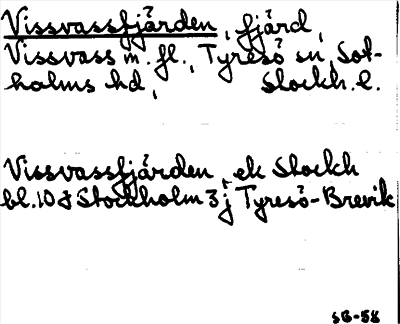 Vissvassfjärden, fjärd,
Vissvass m. fl., Tyresö sn, Sot-
holms hd, Stockh. l.
Vissvassfjärden, ek Stockh
bl. 108 Stockholm 3j Tyresö-Brevik
SB-58